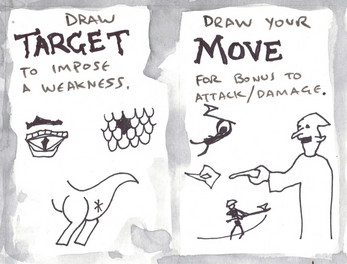 DRAW
TARGET
TO IMPOSE
A WEAKNESS.
DRAW YOUR
MOVE
FOR BONUS TO
ATTACK/DAMAGE.